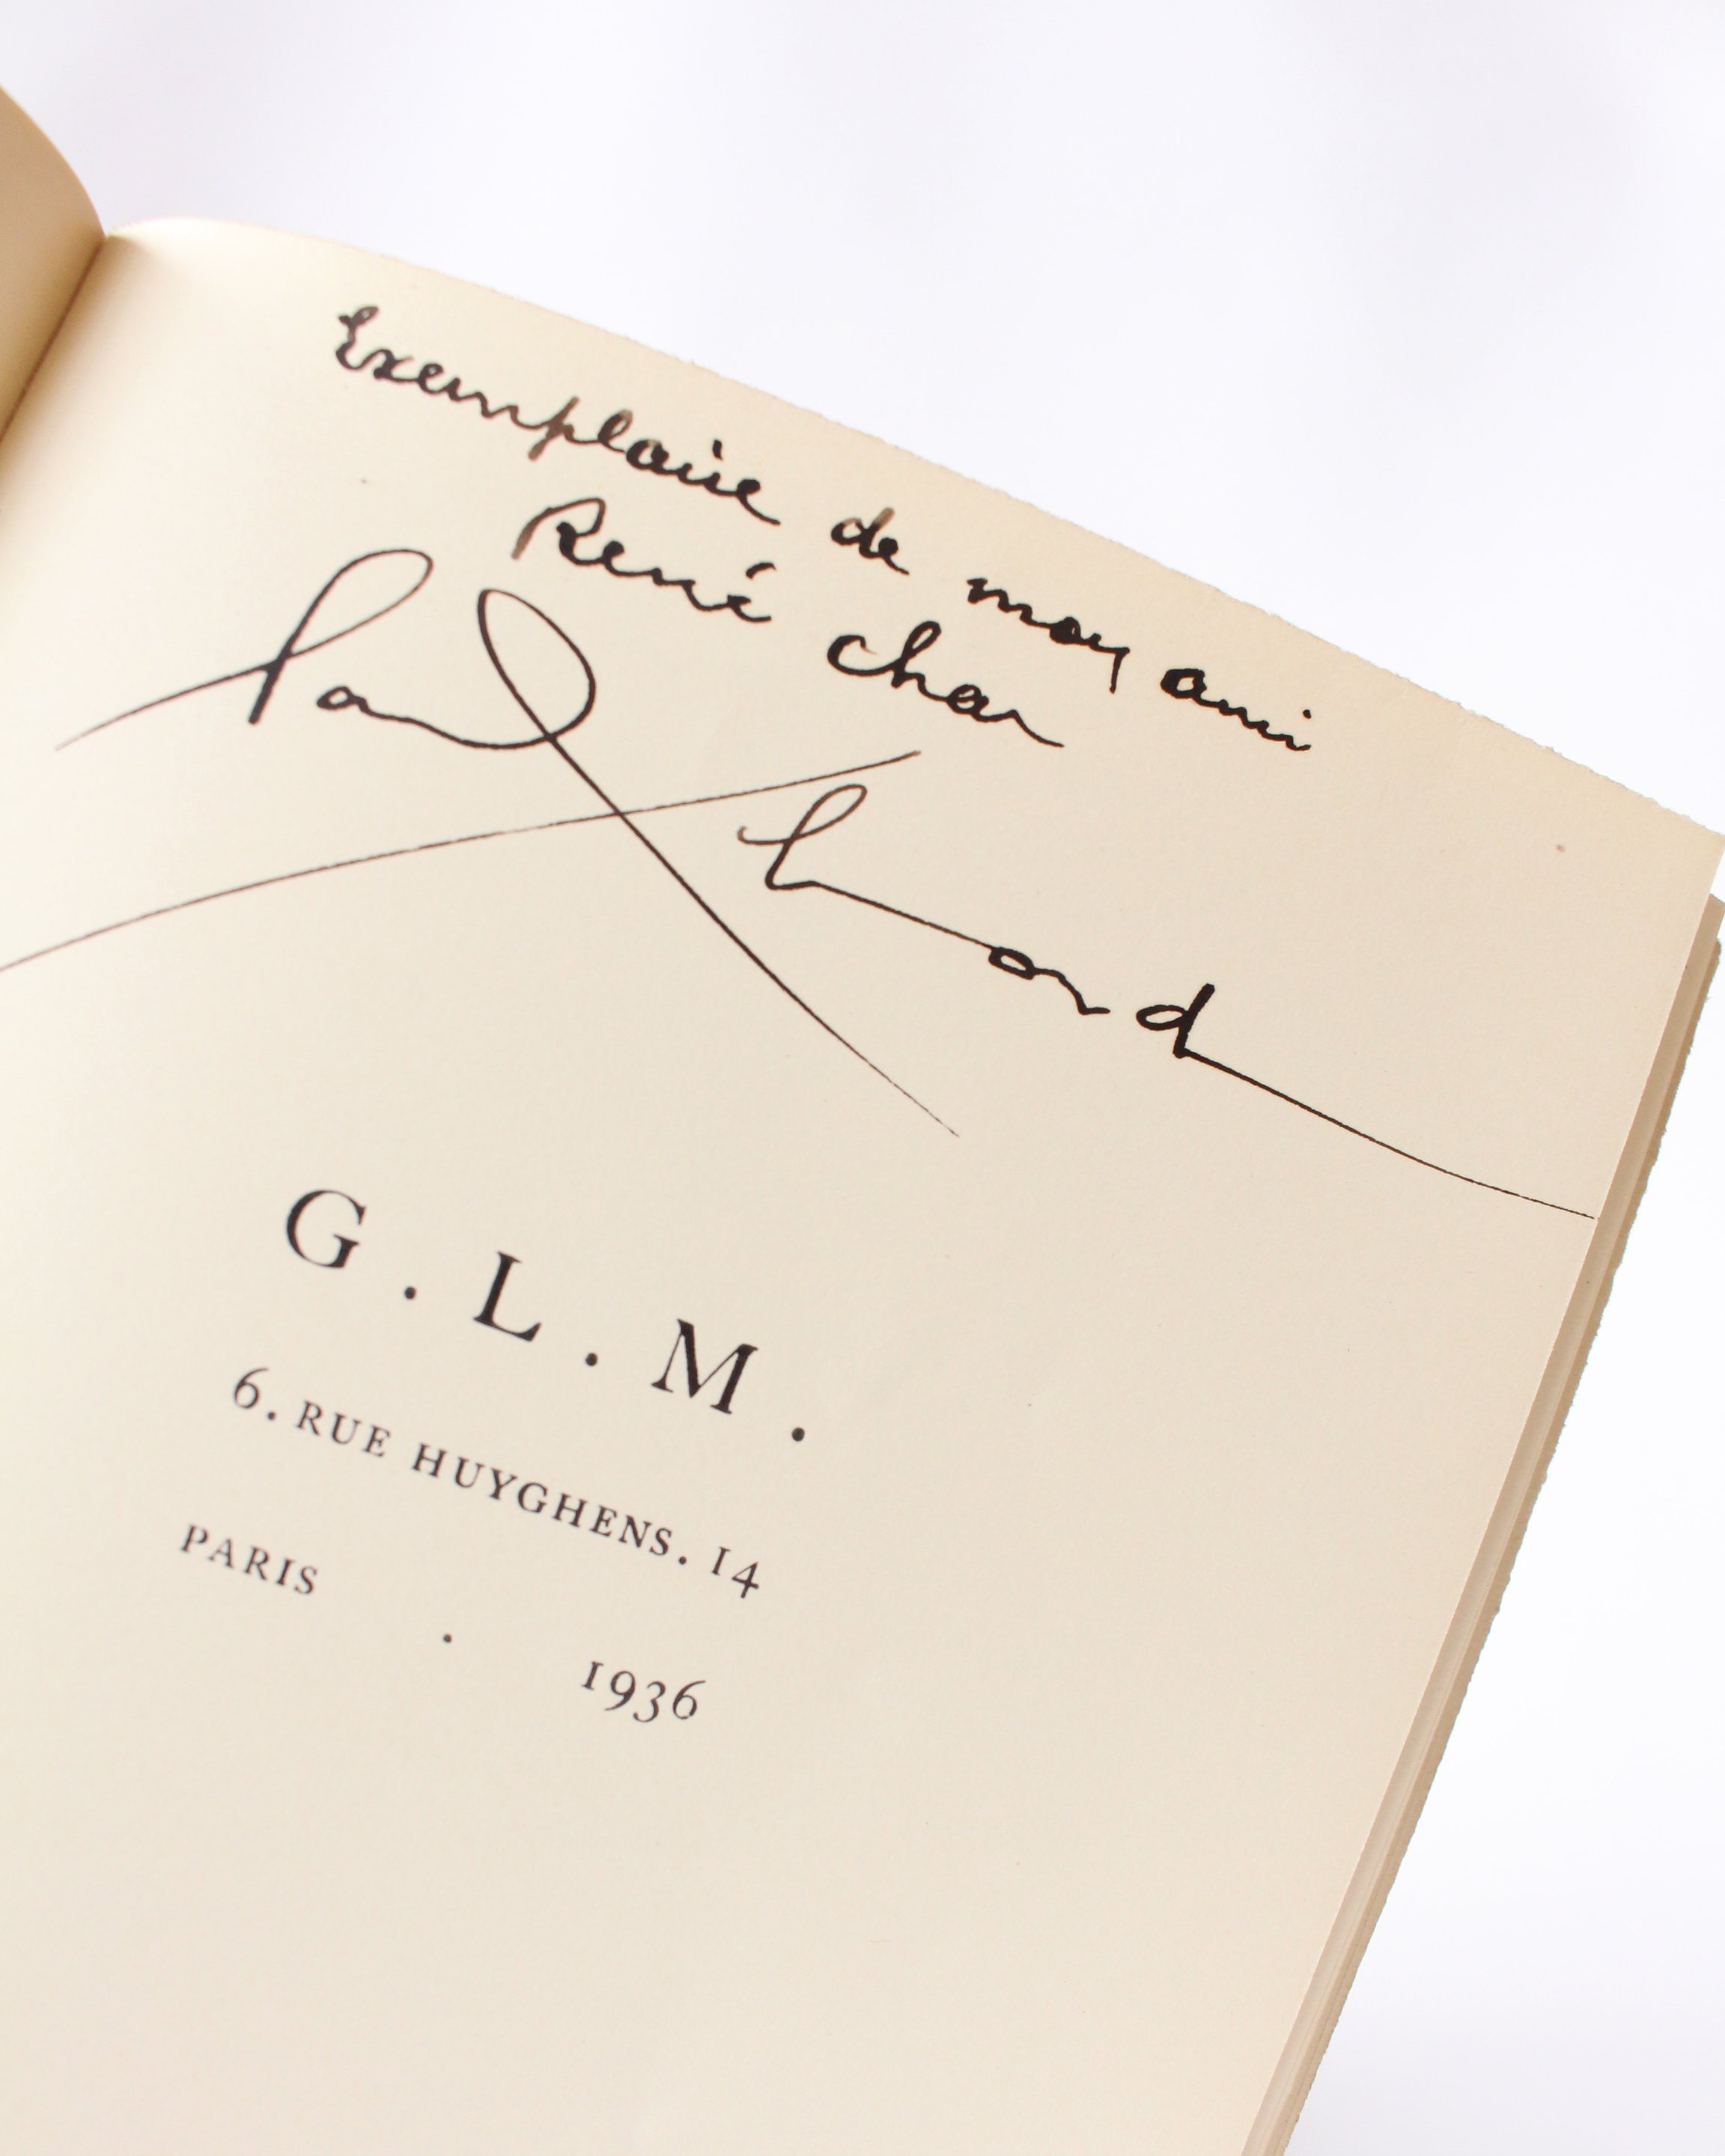 Exemplaire de mon ami
René Char
Paul Eluard
G. L. M.
6. RUE HUYGHENS. 14
PARIS . 1936